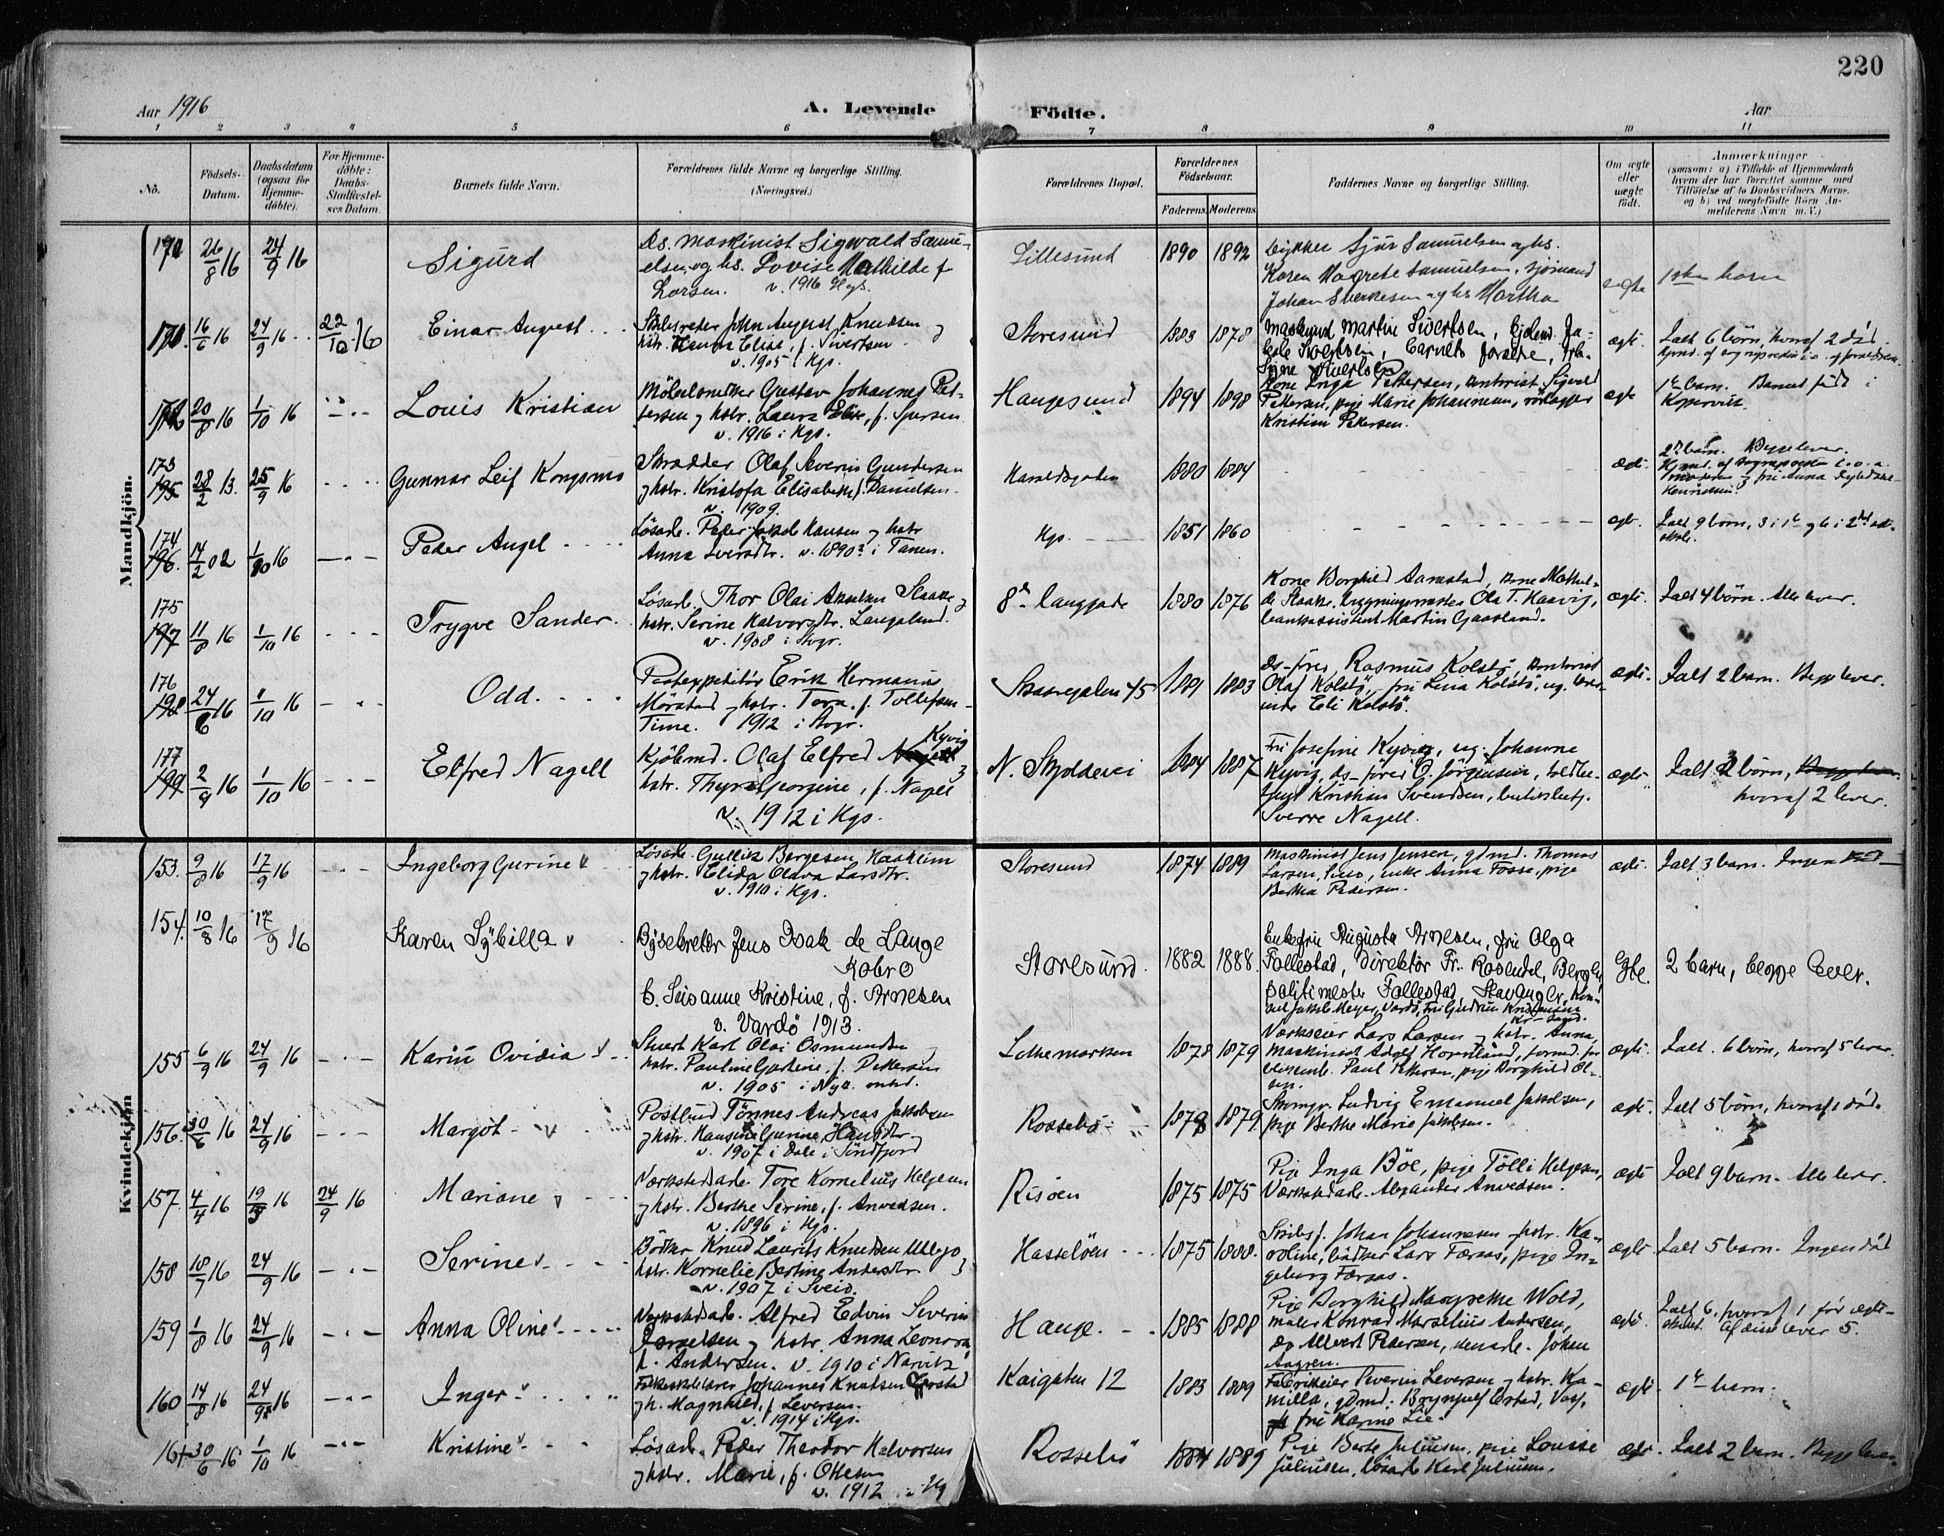 220
Aar 1916
A. Levende
Födte.
Aar
1 2 3 4 5 6 7 8 9 10 11
No.
Födsels-Datum.
Daabsdatum (ogsaa for Hjemme-döbte).
For Hjemme-döbte: Daabs-Stadfæstel-ses Datum.
Barnets fulde Navn.
Forældrenes fulde Navne og borgerlige Stilling. (Næringsvei.)
Forældrenes Bopæl.
Forældrenes Födselsaar.
Faderens
Moderens
Faddernes Navne og borgerlige Stilling.
Om ægte eller uægte födt.
Anmærkninger
(saasom: a) i Tilfælde af Hjemmedaab
hvem der har forrettet samme med
Tilföielse af to Daabsvidners Navne,
og b) ved uegtefödte Börn An-
melderens Navn m. V.)
Mandkjön.
26/8 16 24/9 16 Sigurd
Ds. maskinist Sigwald Samu-
elsen og hs. Lovise Mathilde f
Larsen. v. 1916 Hgs.
Lillesund 1890 1892
Sjur Samuelsen og hs.
Karen Margrete Samuelsen, sjömand
Johan og hs Martha
egte 1ste barn
16/6 16 24/9 16 22/10 16 Einar August
Skibsreder John August Knudsen
hstr. Hanna Elise, f. Sivertsen
v. 1905 i Hgs.
Storesund 1883 1878
Martin Sivertsen, Ja-
kob Sivertsen, barnets forældre,
Signe Sivertsen
ægte. Ialt 6 börn, hvoraf 2 död.
172 20/8 16 1/10 16 Louis Kristian
Möbelsnekker Gustav Johannes Pet-
tersen og hstr. Laura Elise, f. Iversen
v. 1916 i Hgs.
Haugesund 1894 1898
Kone Inga Pettersen, kontorist Sigvald
Pettersen, pige Marie Johannesen, rörlægger
Kristian Pettersen.
ægte 1ste barn. Barnet födt i
Kopervik.
173 28/2 13. 25/9 16 Gunnar Leif Kongsmo
Skrædder Olaf Severin Gundersen
og hstr. Kristofa Elisabeth f. Danielsen.
v. 1909.
Haraldsgaten 1880 1884
ægte 2det barn. Begge lever.
174 196. 14/2 02 1/10 16 Peder Angel
Lösarb. Peder Jakob Hansen og hstr
Anna Iversdtr. v. 1890? i Tanen.
Hgs. 1851 1860
ægte. Ialt 9 börn, 3 i 1ste og 6 i 2det æg-
teskab.
175 197 11/8 16 1/10 16 Trygve Sander
Lösarb. Thor Olai Ankitten Staake og
hstr. Serine Halvorsdtr. Langeland.
v. 1908 i Stvgr.
8de langgade 1880 1876
Kone Borghild Aarrestad, Kone Mathil-
de Staake, bygningsmester Ola T. Haavig,
bankassistent Martin Gaasland.
ægte. Ialt 4 börn. Alle lever.
176 198 24/6 16 1/10 16 Odd.
Postexpeditör Erik Hermann
Mörstad og hstr. Tora, f. Tollefsen
Time. 1912 i Stvgr.
Skaaregaten 45 1881 1883
ds-förer Rasmus Kolstö, kontorist
Olaf Kolstö, fru Lina Kolstö, ug. lærer-
inde Eli Kolstö.
ægte. Ialt 2 barn. Begge lever.
177 199 2/9 16 1/10 16 Elfred Nagell
Kjöbmd. Olaf Elfred Nagell Kyvig
hstr. Thyra Georgine, f. Nagell
v. 1912 i Hgs.
N. Skjoldevei 1884 1887
Fru Josefine Kyvig, ug. Johanne
Kyvig, ds-förer O. Jörgensen, toldbe-
tjent Kristian Svendsen, butiksbetj.
Sverre Nagell.
ægte. Ialt 3 börn,
hvoraf 2 lever.
Kvindekjön
153. 9/8 16 17/9 16 Ingeborg Gurine
Lösarb. Gullik Børgesen Haaheim
og hstr. Elida Olava Larsdtr.
v. 1910 i Hgs.
Storesund 1874 1889
Maskinist Jens Jensen, gdmd. Thomas
Larsen, enke Anna Fosse, pige
Bertha Pedersen.
ægte. Ialt 3 barn. Ingen död
154. 10/8 16 17/9 16 Karen Sybilla
Bysekretær Jens Isak de Lange
Kobro
h. Susanne Kristine, f. Arnesen
v. Vardö 1913.
Storesund. 1882 1888.
Enkefru Augusta Arnesen, fru Olga
Follestad, direktör Fr. Rosendal, Bergen
politimester Follestad Stavanger, kon-
sul Jakob Meyer, Vardö, Fru Gudrun Kristensen
Kr-sand.
Egte. 2 barn, begge lever.
155 6/9 16 24/9 16 Karin Ovidia
Stuert Karl Olai Osmundsen
hstr. Pauline Gurine, f. Pettersen
v. 1905 i Nyk. ombd.
Lothemarken 1878 1879
Værkseier Lars Larsen og hstr. Anna,
Maskinist Adolf Hovnland, formd. for
Paul Pettersen, pige Borghild Ol-
sen.
ægte. Ialt 6 börn, hvoraf 5 lever.
156. 30/6 16 24/9 16 Margot
Postbud Tönnes Andreas Jakobsen
og hstr. Hansine Gurine Hansdtr
v. 1907 i Dale i Söndfjord
Rossebö 1878 1879.
Ludvig Emanuel Jakobsen,
pige Berthe Marie Jakobsen.
ægte. Ialt 5 börn, hvoraf 1 död.
157. 4/4 16 19/3 16 24/9 16 Mariane
Værkstedsarb. Tore Kornelius Helgesen
og hstr. Berthe Serine, f. Anvedsen.
v. 1896 i Hgs.
Risöen 1875 1875
Pige Inga Böe, pige Tölli Helgesen,
Værkstedarb. Alexander Anvedsen.
ægte Ialt 9 barn. Alle lever.
158 18/7 16 24/9 16 Serine
Bödker Knud Laurits Knudsen Utbjo
hstr. Kornelie Bertine Andersdtr
v. 1907 i Sveio.
Hasselöen 1875 1888.
Johan Johannesen hstr. Ka-
roline, bödker Lars Færaas, pige In-
geborg Færaas.
ægte Ialt 5 barn. Ingen död
159 1/8 16 24/9 16 Anna Oline
Værkstedsarb. Alfred Edvin Severin
Israelsen og hstr. Anna Leonora
f. Andersen. v. 1910 i Narvik
Hauge. 1885 1888
Pige Borghild Margrethe Wold,
maler Konrad Marselius Andersen,
Albert Pedersen, stenarb. Johan
Aagren.
ægte Ialt 6, hvoraf 1 för ægte-
skabet. Af disse lever 5.
160 14/8 16 24/9 16 Inger
Folkeskolelærer Johannes Knutsen Örstad
og h. Magnhild, f. Leversen.
v. 1914 i Hgs.
Kaigaten 12 1883 1889
Fabrikeier Severin Leversen og hstr. Ka-
milla, gdmd. Brynjulf Örstad, Voss,
fru Karine Lie.
ægte. 1ste barn.
161 30/6 16 1/10 16 Kristine
Lösarb. Peder Theodor Halvorsen
og hstr. Marie, f. Ottesen
v. 1912 i Hg
Rossebö 1884 1889
Pige Berte Juliusen, pige Louise
Juliusen, Lösarb Karl Juliusen.
ægte. Ialt 2 barn. Begge lever.